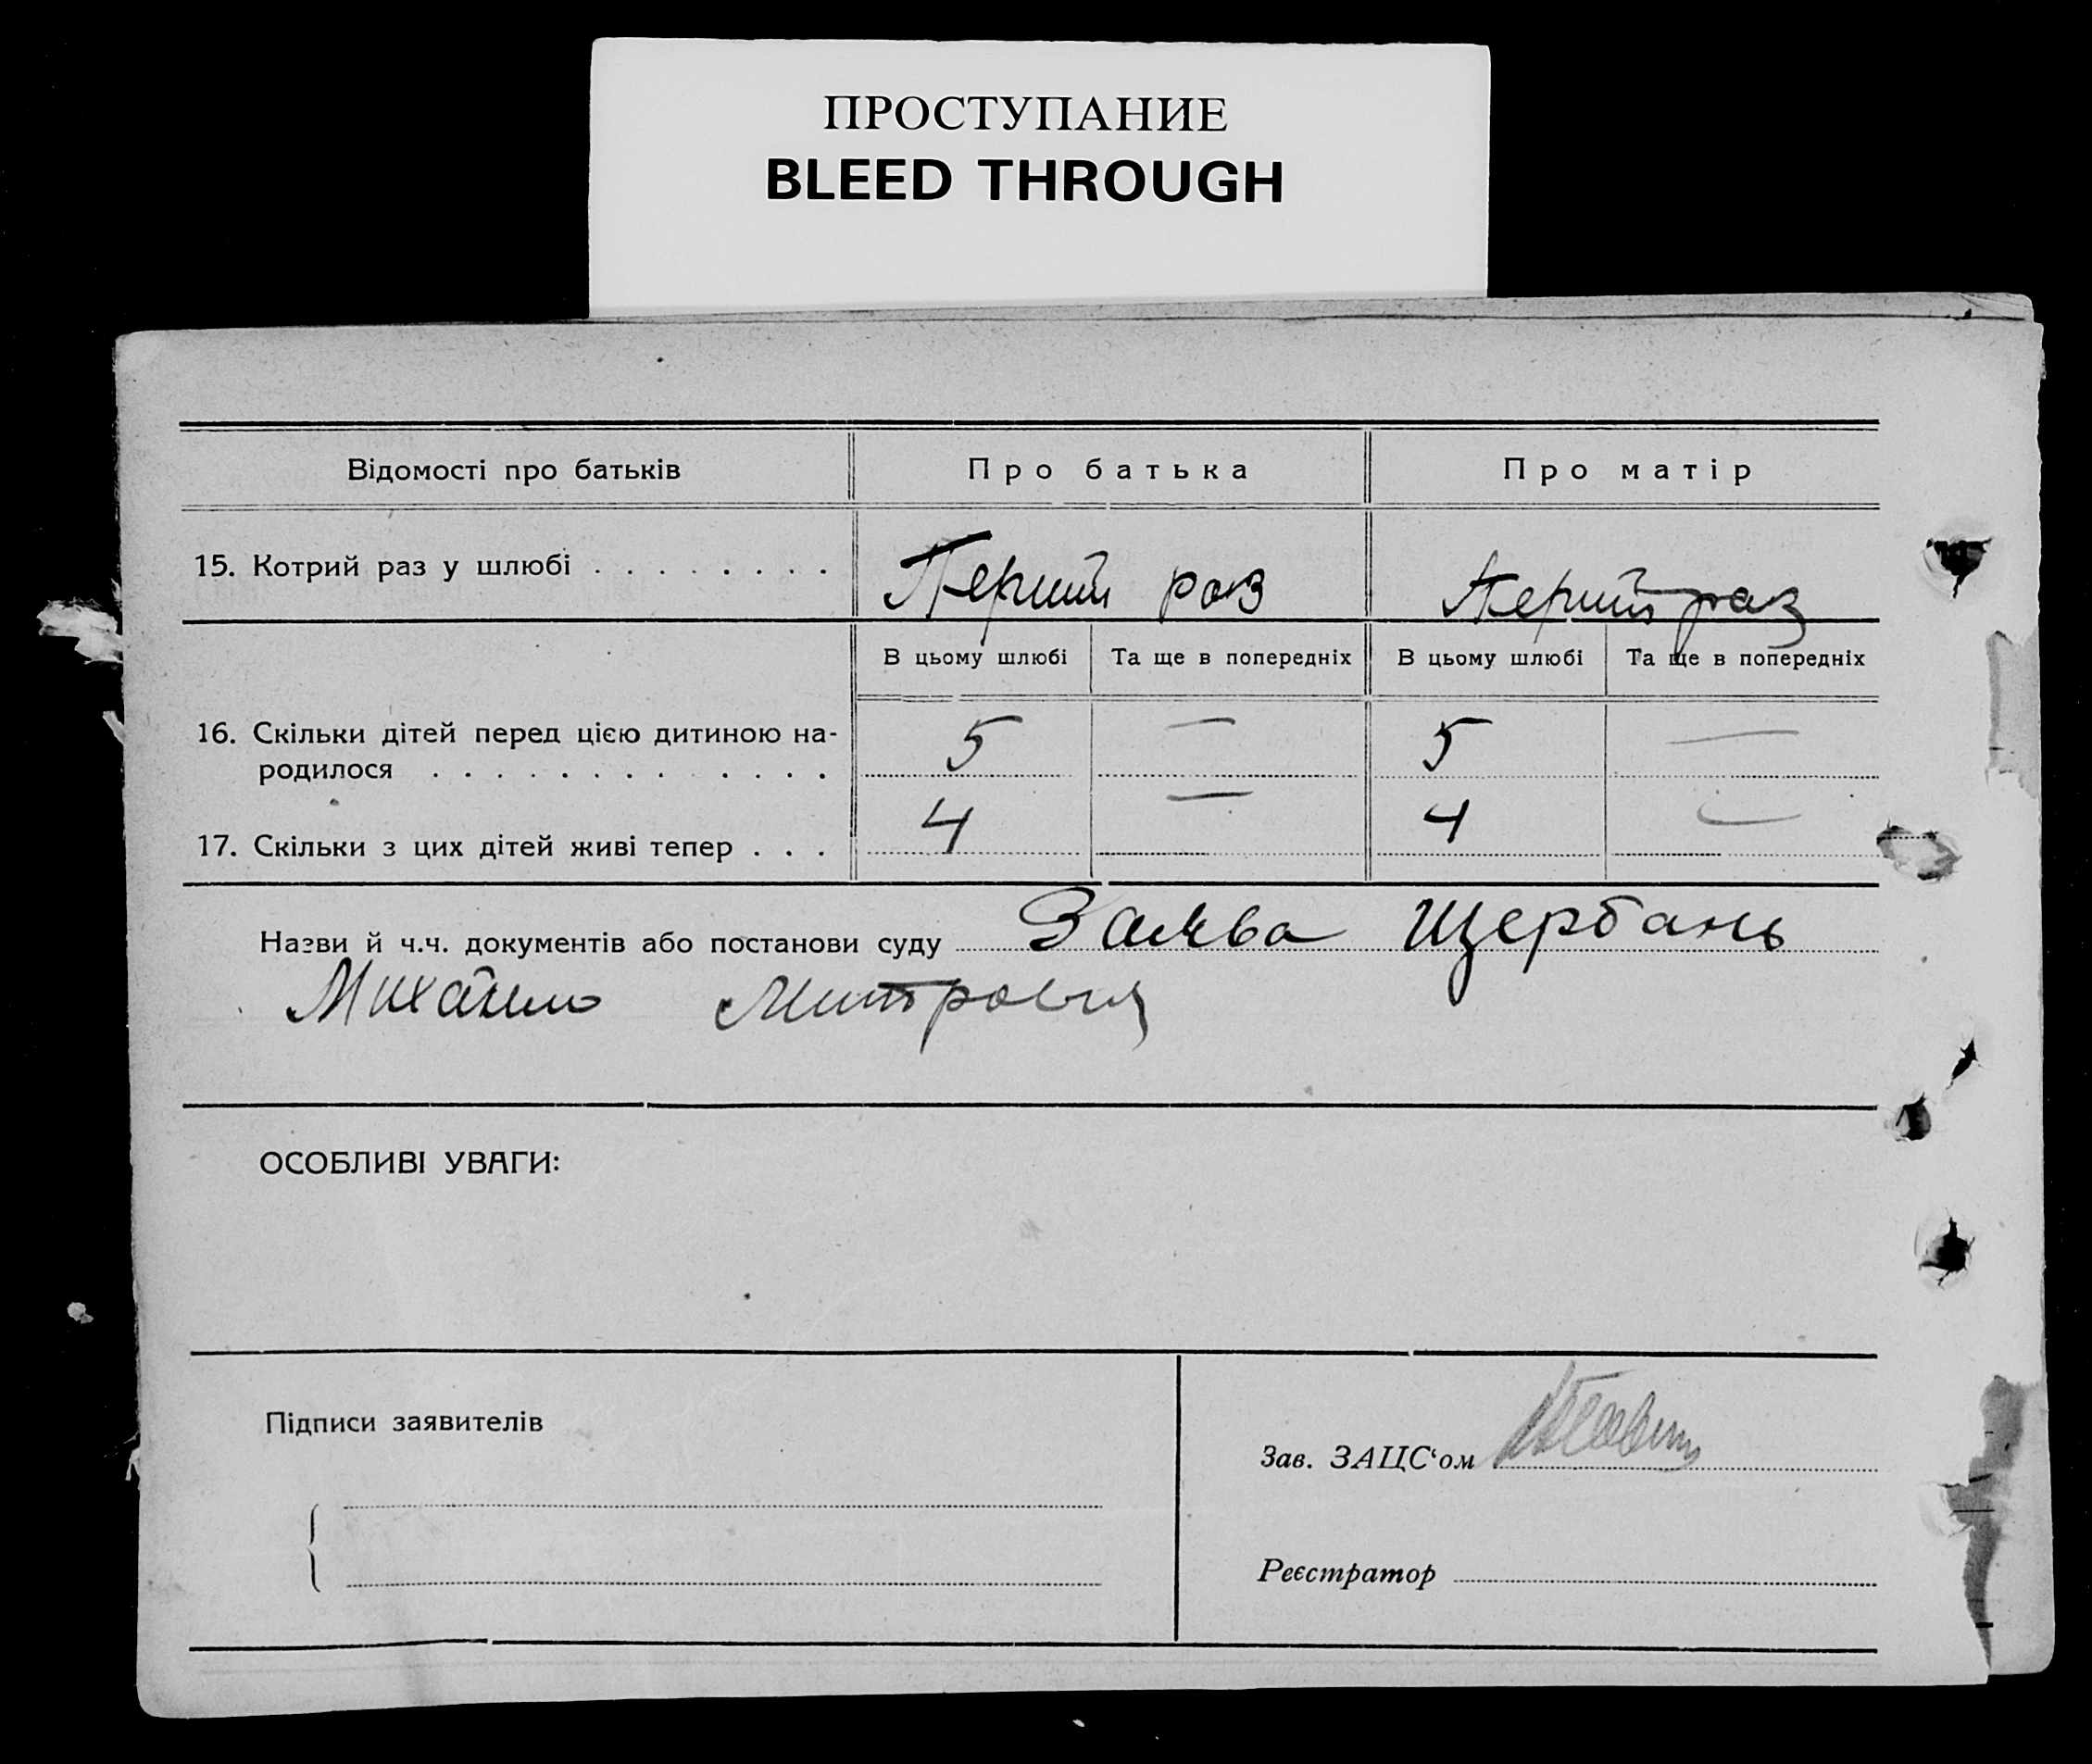 ПРОСТУПАНИЕ
BLEED THROUGH
Відомості про батьків Про батька Про матір
15. Котрий раз у шлюбі . . . . . . . . Перший раз Перший раз
В цьому шлюбі Та ще в попередніх В цьому шлюбі Та ще в попередніх
16. Скільки дітей перед цією дитиною на-
родилося . . . . . . . . . . . . . 5 — 5 —
17. Скільки з цих дітей живі тепер . . . 4 — 4 —
Назви й ч.ч. документів або постанови суду Заява Щербань
Михайло Митрович
ОСОБЛИВІ УВАГИ:
Підписи заявителів
Зав. ЗАЦС‘ом
Реєстратор